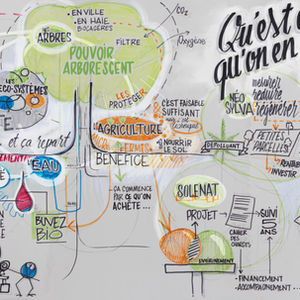 EN VILLE
EN HAIE
BOCAGÈRES
LES
ARBRES
FILTRE
CO2
Oxygène
POUVOIR
ARBORESCENT
Qu'est
qu'on en
LES
ÉCO-SYSTÈMES
LES
PROTÉGER
et ça repart
AGRICULTURE
C'EST FAISABLE
SUFFISANT
NOURRIR
LE SOL
BÉNÉFICE
EAU
NÉO
SILVA
réduire
régénérer
DÉPOLLUANT
PETITES
PARCELLES
INVESTIR
ÇA COMMENCE
PAR CE QU'ON
ACHÈTE...
BUVEZ
BIO
SOLENAT
PROJET
CAHIER
DES
CHARGES
SUIVI
5
ANS
FINANCEMENT
ACCOMPAGNEMENT...